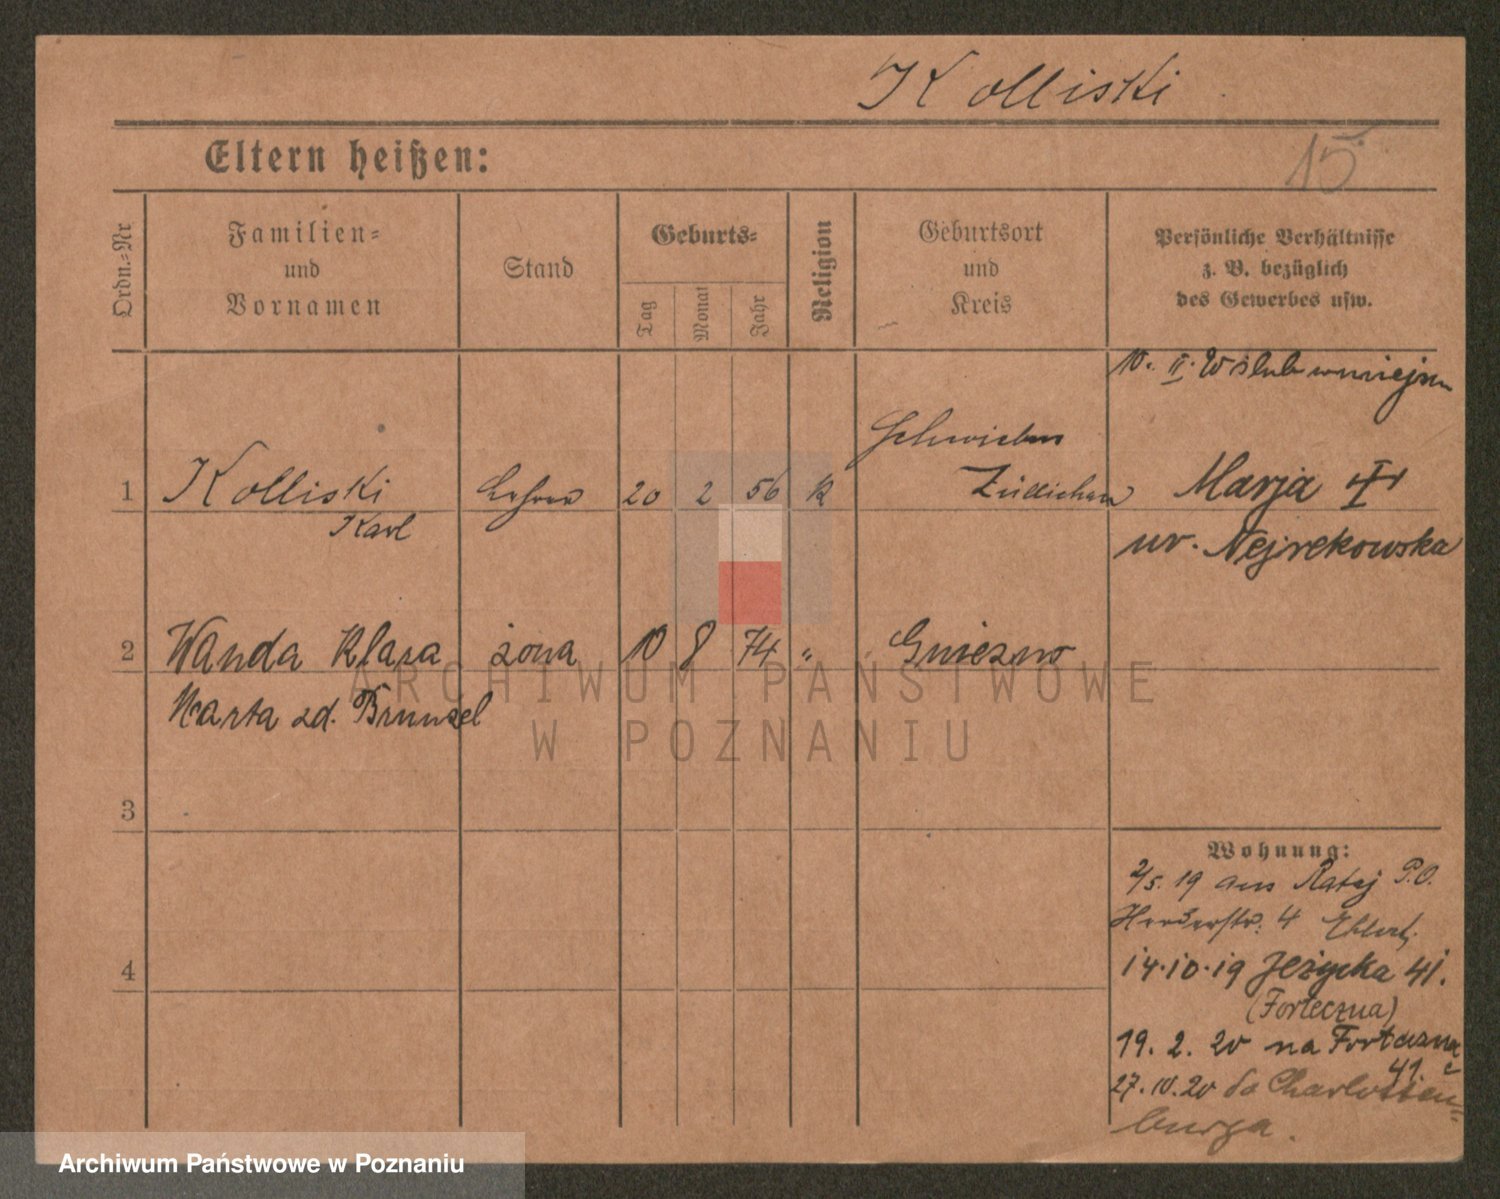 Kolliski
Eltern heißen:
15
Ordn.-Nr
Familien-
und
Vornamen
Stand
Geburts-
Tag
Monat
Jahr
Religion
Geburtsort
und
Kreis
Persönliche Verhältnisse
z. B. bezüglich
des Gewerbes usw.
10. II. 20 ślub w miejscu
1 Kolliski Lehrer 20 2 56 k Schwiebus
Karl
Züllichau
Marja
ur. Nejrekowska
2 Wanda Klara żona 10 8 74 " Gniezno
Marta zd. Brunzel
3
4
Wohnung:
2/5. 19 aus Rataj P.O.
Herderstr. 4
14.10.19 Jeżycka 41.
(Forteczna)
19. 2. 20 na Forteczna
41.
27.10.20 do Charlotten-
burga.
ARCHIWUM PAŃSTWOWE
W POZNANIU
Archiwum Państwowe w Poznaniu